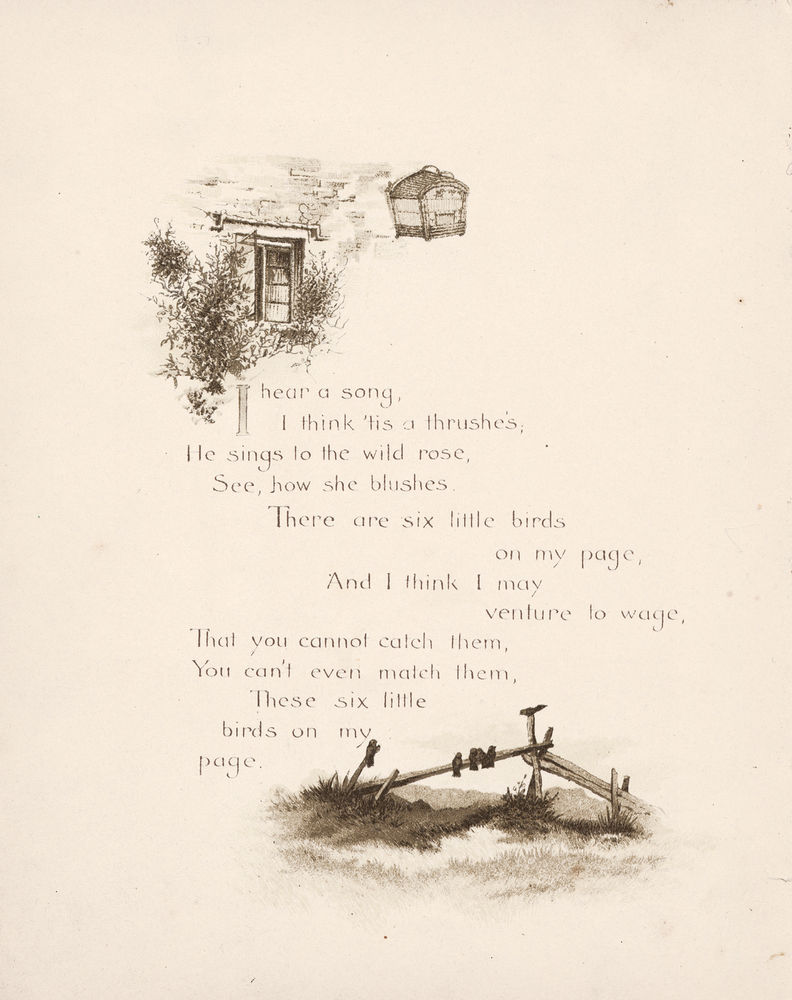 I hear a song,
I think 'tis a thrushe's;
He sings to the wild rose,
See, how she blushes.
There are six little birds
on my page,
And I think I may
venture to wage,
That you cannot catch them,
You can't even match them,
These six little
birds on my
page.